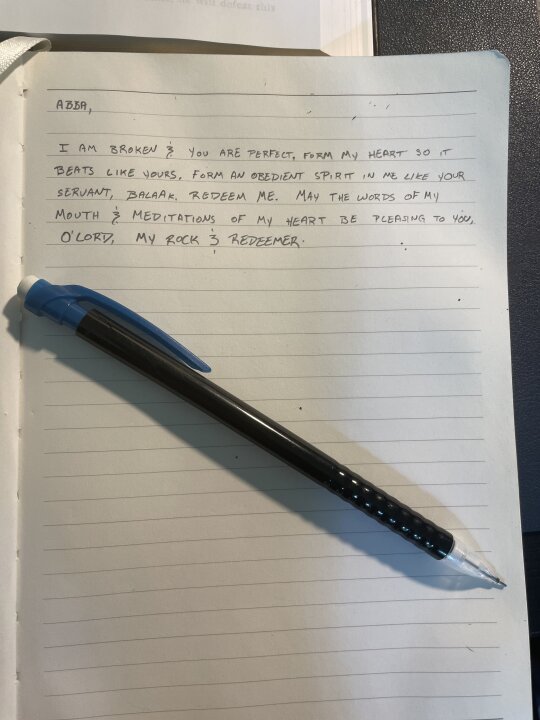 he will defeat this
ABBA,
I AM BROKEN & YOU ARE PERFECT, FORM MY HEART SO IT
BEATS LIKE YOURS, FORM AN OBEDIENT SPIRIT IN ME LIKE YOUR
SERVANT, BALAAK. REDEEM ME. MAY THE WORDS OF MY
MOUTH & MEDITATIONS OF MY HEART BE PLEASING TO YOU,
O'LORD, MY ROCK & REDEEMER.